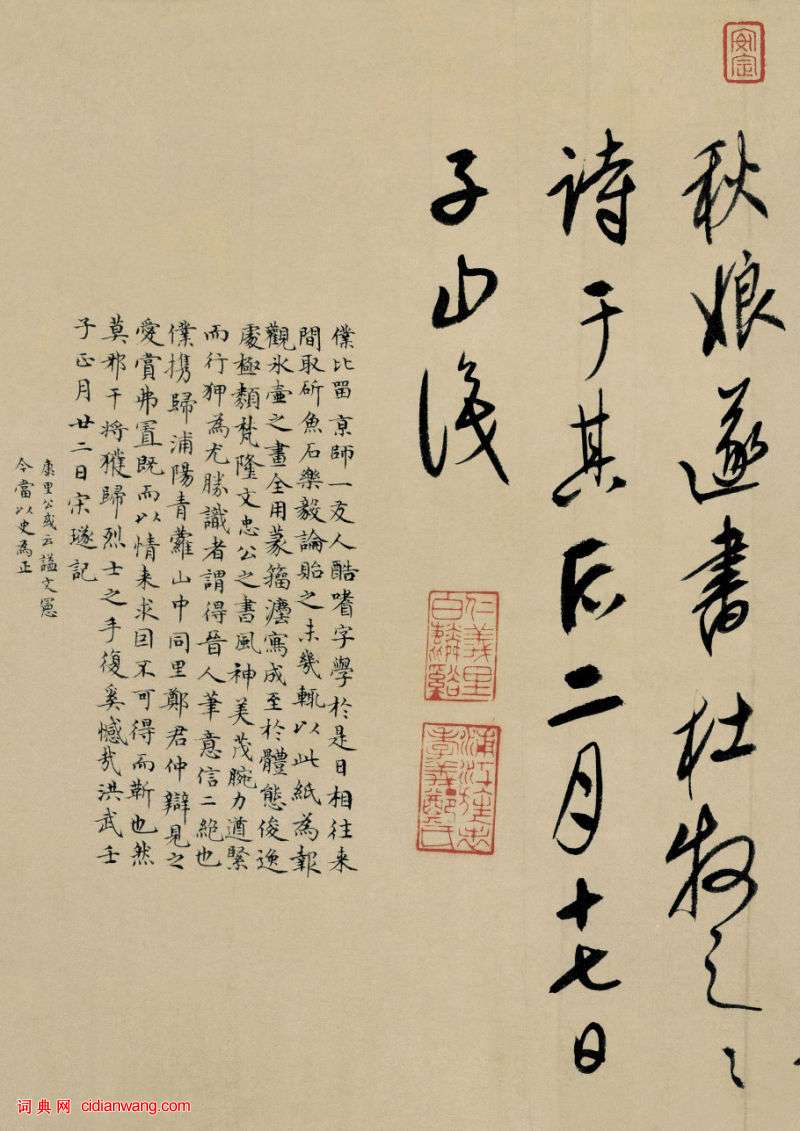 安定
秋娘遂書杜牧之〻
詩于其后二月十七日
子山識
仁義里
白麟谿
浦江旌忠
孝義鄭氏
僕比留京師一友人酷嗜字學於是日相往来
間取斫魚石樂毅論貽之未幾輒以此紙為報
觀氷壷之畫全用篆籀灋寫成至於體態俊逸
處極類梵隆文忠公之書風神美茂腕力遒緊
而行狎為尤勝識者謂得晉人筆意信二絶也
僕携歸浦陽青蘿山中同里鄭君仲辯見之
愛賞弗置既而以情来求囙不可得而靳也然
莫邪干將獲歸烈士之手復奚憾哉洪武壬
子正月廿二日宋璲記
康里公或云謚文憲
今當以史為正
词典网 cidianwang.com